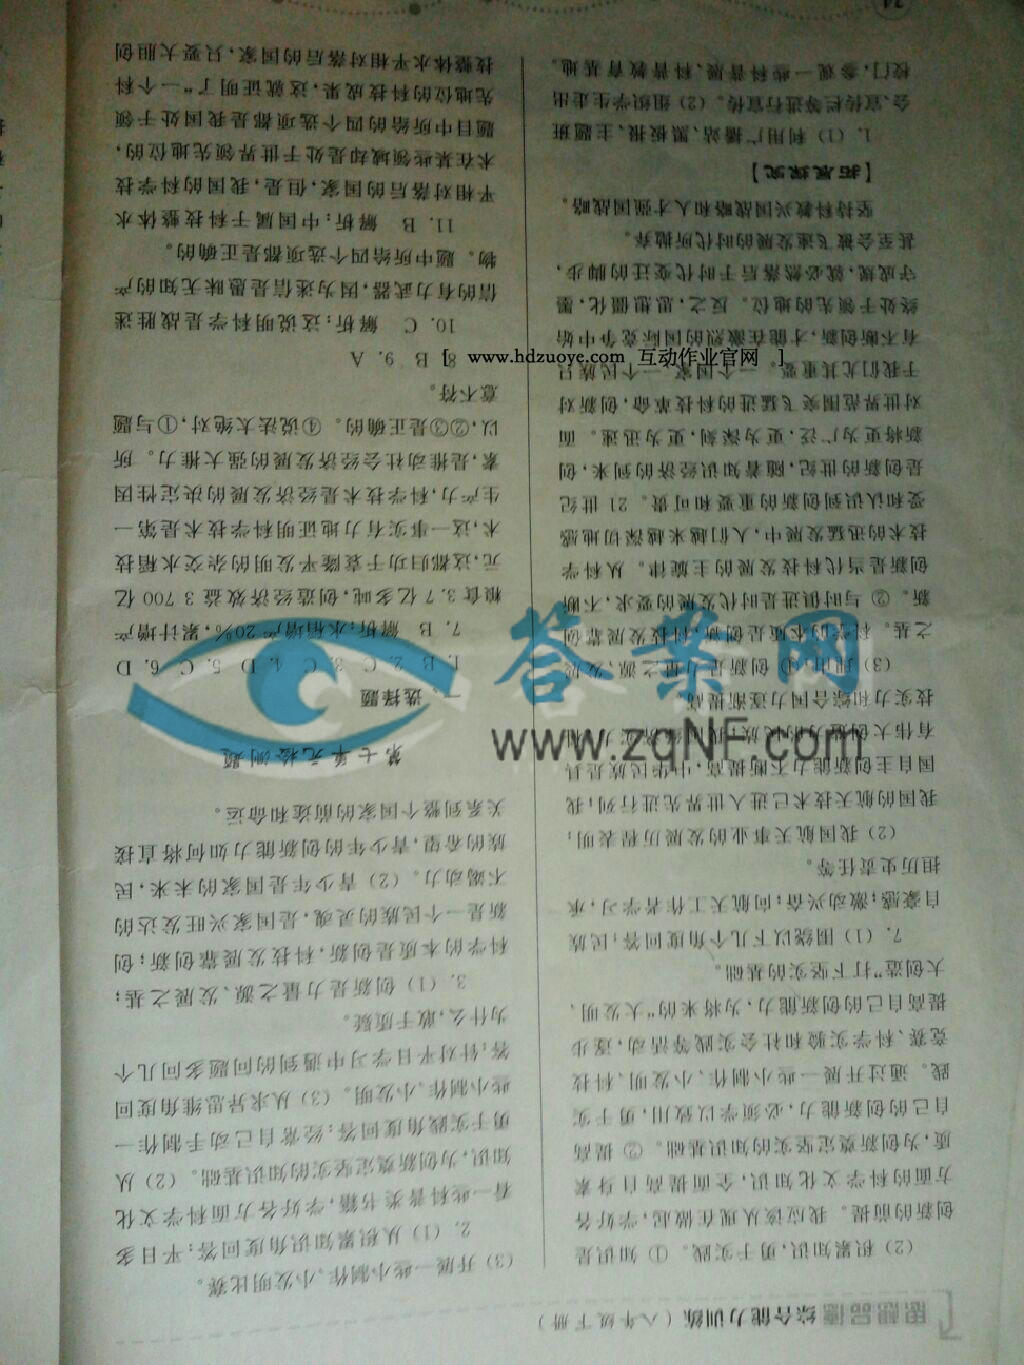 思想品德 综合能力训练（八年级下册）
（2）积累知识，勇于实践。① 知识是
创新的前提。我应该从现在做起，学好各
方面的科学文化知识，全面提高自身素
质，为创新奠定坚实的知识基础。② 提高
自己的创新能力，必须学以致用，勇于实
践。通过开展一些小制作、小发明、科技
竞赛、科学实验和社会实践等活动，逐步
提高自己的创新能力，为将来的“大发明、
大创造”打下坚实的基础。
7.（1）围绕以下几个角度回答：民族
自豪感；激动兴奋；向航天工作者学习，承
担历史责任等。
（2）我国航天事业的发展历程表明，
我国的航天技术已进入世界先进行列；我
国自主创新能力不断提高，中华民族是具
有伟大创造力的民族；我国经济实力、科
技实力和综合国力逐渐提高。
（3）理由：① 创新是力量之源、发展
之基。科学的本质是创新，科技发展靠创
新。② 与时俱进是时代发展的要求，不断
创新是当代科技发展的主旋律。从科学
技术的迅猛发展中，人们越来越深切地感
受和认识到创新的重要和可贵。21 世纪
是创新的世纪，随着知识经济的到来，创
新将更为广泛、更为深刻、更为迅速。面
对世界范围突飞猛进的科技革命，创新对
于我们尤其重要。一个国家、一个民族只
有不断创新，才能在激烈的国际竞争中始
终处于领先的地位。反之，思想僵化，墨
守成规，就必然落后于时代变迁的脚步，
甚至会被飞速发展的时代所抛弃。
坚持科教兴国战略和人才强国战略。
【拓展探究】
1.（1）利用广播站、黑板报、主题班
会、宣传栏等进行宣传。（2）组织学生走出
校门，参观一些科普展、科普教育基地。
74
（3）开展一些小制作、小发明比赛。
2.（1）从积累知识角度回答：平日多
看一些科普类书籍，学好各方面科学文化
知识，为创新奠定坚实的知识基础。（2）从
勇于实践角度回答：经常自己动手制作一
些小制作、小发明。（3）从求异思维角度回
答：针对平日学习中遇到的问题多问几个
为什么，敢于质疑。
3.（1）创新是力量之源、发展之基；
科学的本质是创新，科技发展靠创新；创
新是一个民族的灵魂，是国家兴旺发达的
不竭动力。（2）青少年是国家的未来，民
族的希望，青少年的创新能力如何将直接
关系到整个国家的前途和命运。
第七单元检测题
一、选择题
1. B 2. C 3. C 4. D 5. C 6. D
7. B 解析：水稻增产 20%，累计增产
粮食 3.7 亿多吨，创造经济效益 3 700 亿
元，这都归功于袁隆平发明的杂交水稻技
术，这一事实有力地证明科学技术是第一
生产力，科学技术是经济发展的决定性因
素，是推动社会经济发展的强大推力。所
以，②③是正确的。④说法太绝对，①与题
意不符。
8. B 9. A
10. C 解析：这说明科学是战胜迷
信的有力武器，因为迷信是愚昧无知的产
物。题中所给四个选项都是正确的。
11. B 解析：中国属于科技整体水
平相对落后的国家，但是，我国的科学技
术在某些领域却是处于世界领先地位的，
题目中所给的四个选项都是我国处于领
先地位的科技成果，这就证明了“一个科
技整体水平相对落后的国家，只要大胆创
[ www.hdzuoye.com 互动作业官网 ]
答案网
www.zqNF.com